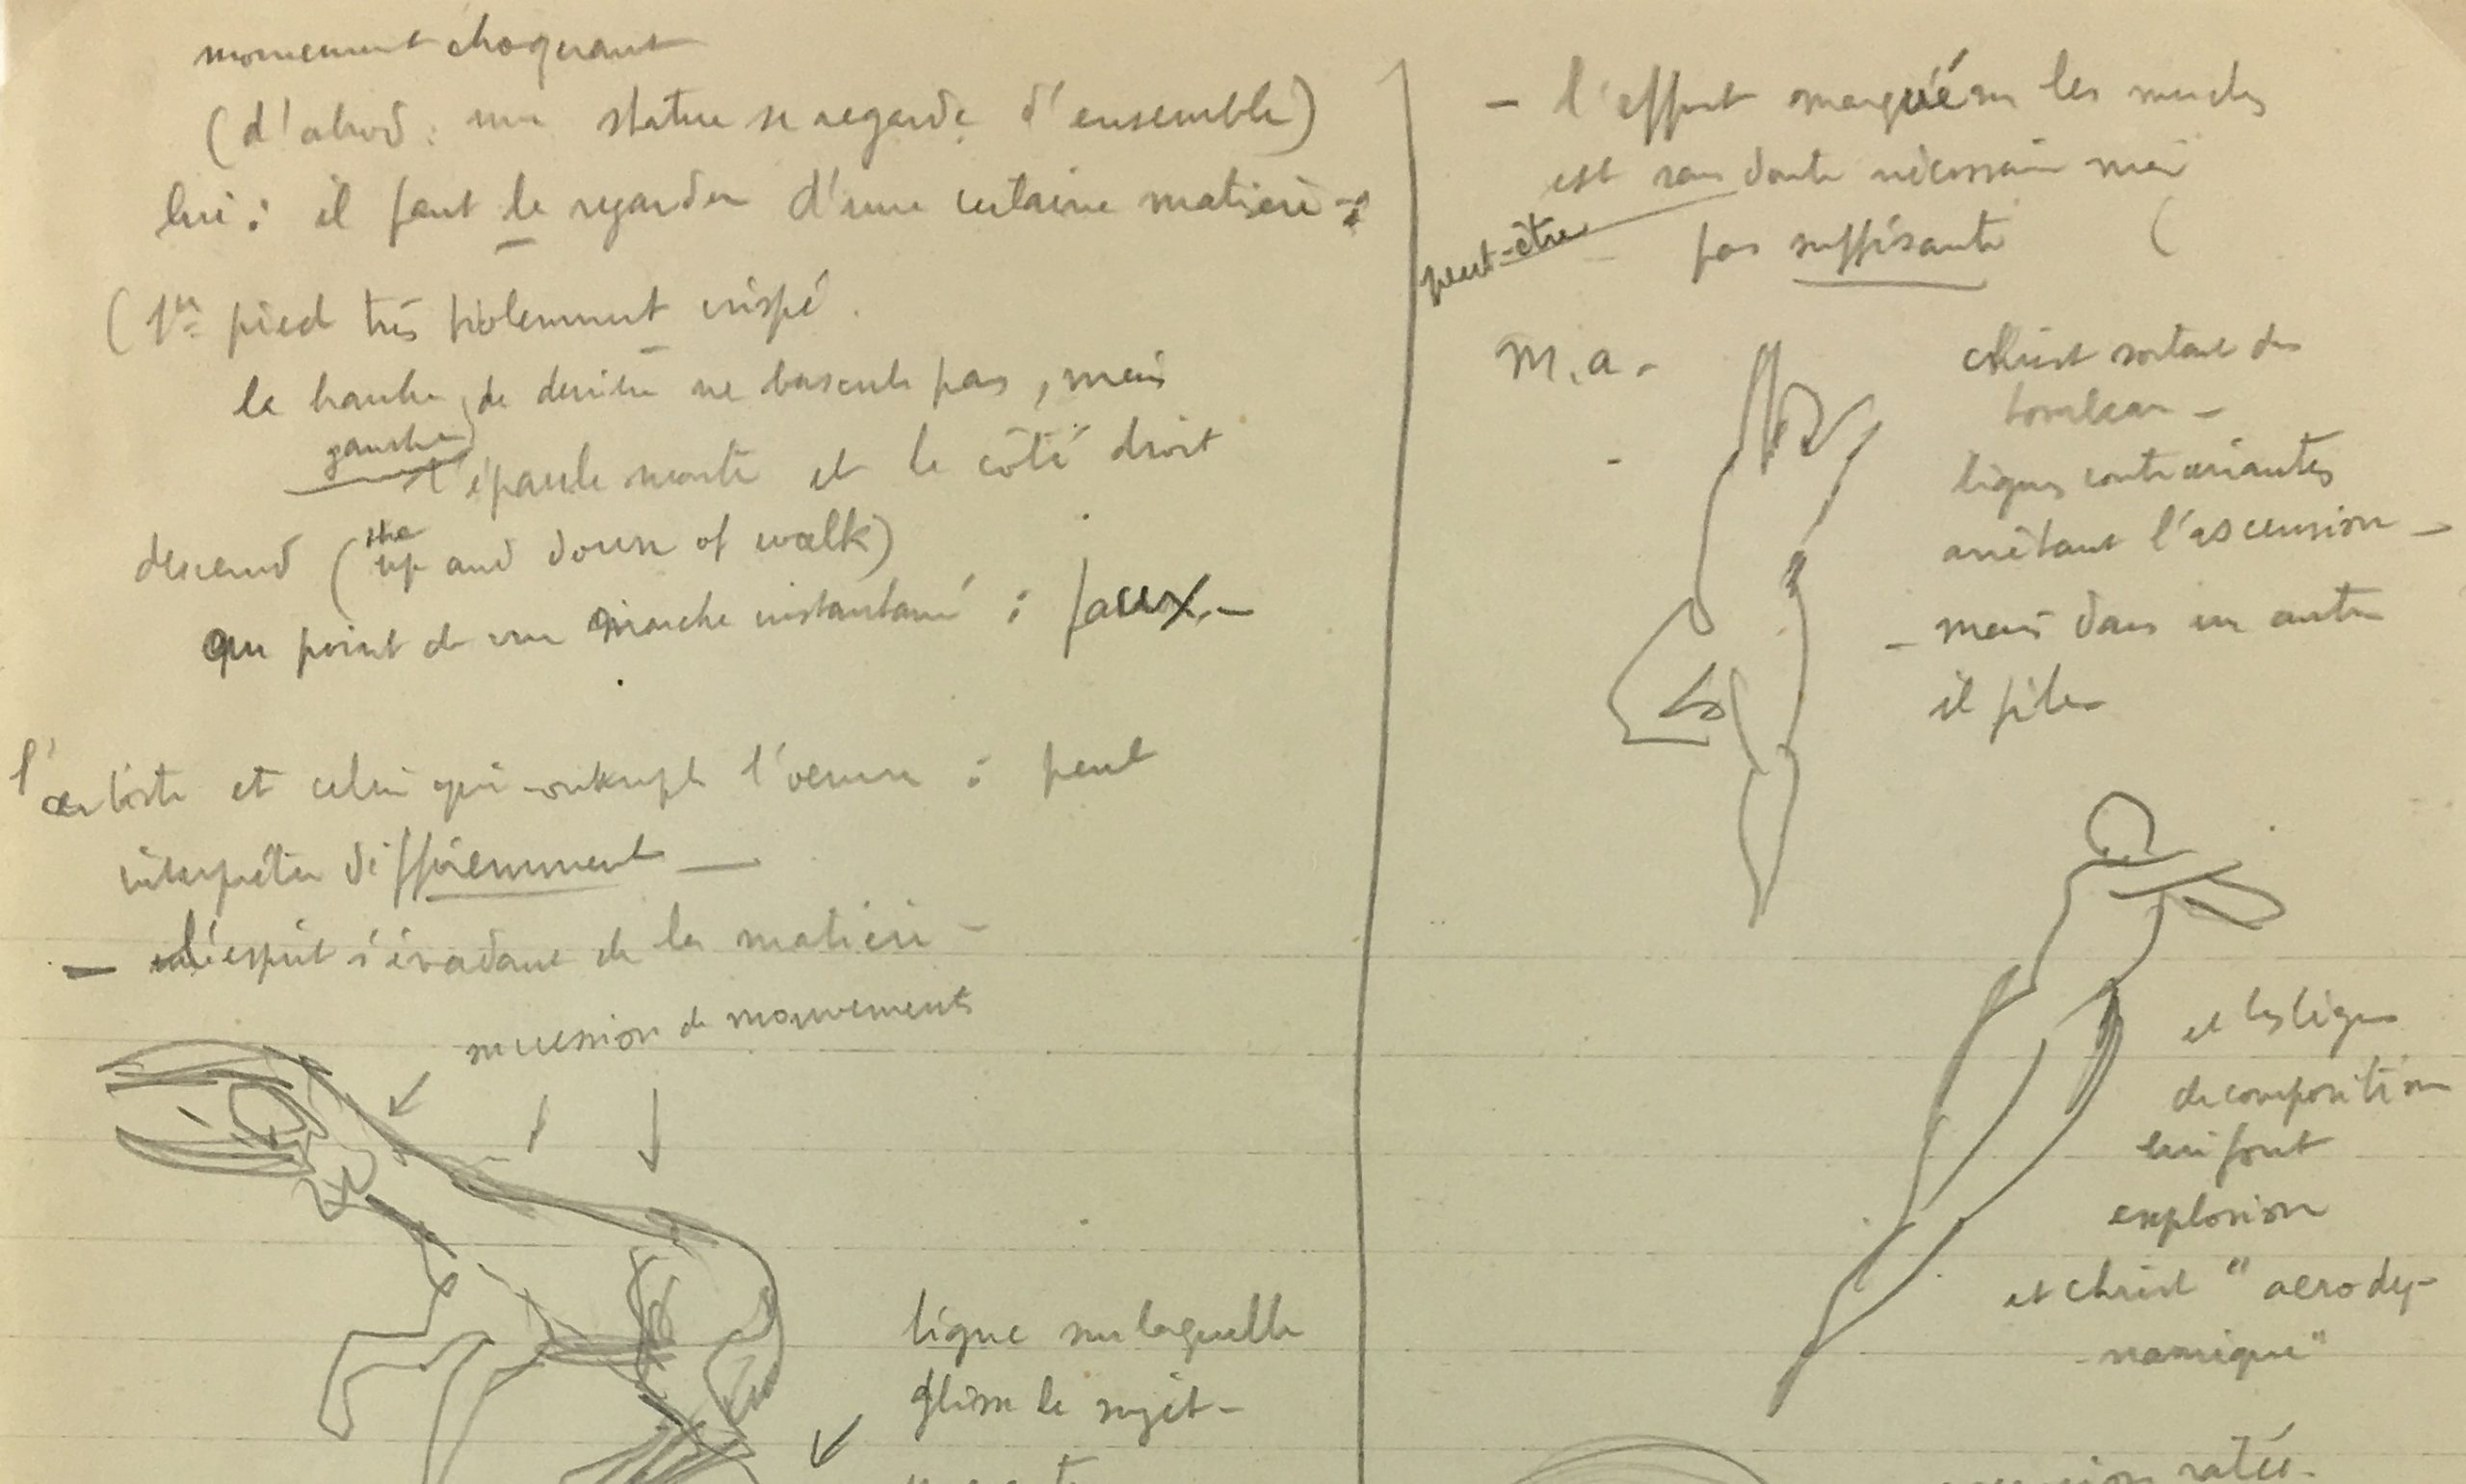 mouvement choquant
(d'abord : une statue se regarde d'ensemble)
lui : il faut le regarder d'une certaine matière
(1er pied très violemment crispé.
la hanche de derrière ne bascule pas, mais
gauche
l'épaule monte et le côté droit
descend (the up and down of walk)
qu point de vue marche instantané : faux. -
l'artiste et celui qui contemple l'œuvre : peut
interpréter différemment —
- l'esprit s'évadant de la matière -
succession de mouvements
ligne sur laquelle
glisse le sujet -
- l'effort marqué sur les muscles
est sans doute nécessaire mais
peut-être
pas suffisante (
M. a. -
Christ sortant du
tombeau -
lignes contrariantes
arrêtant l'ascension -
- mais dans un autre
il file
et les lignes
de composition
lui font
explosion
et Christ "aérody-
namique"
ratée.